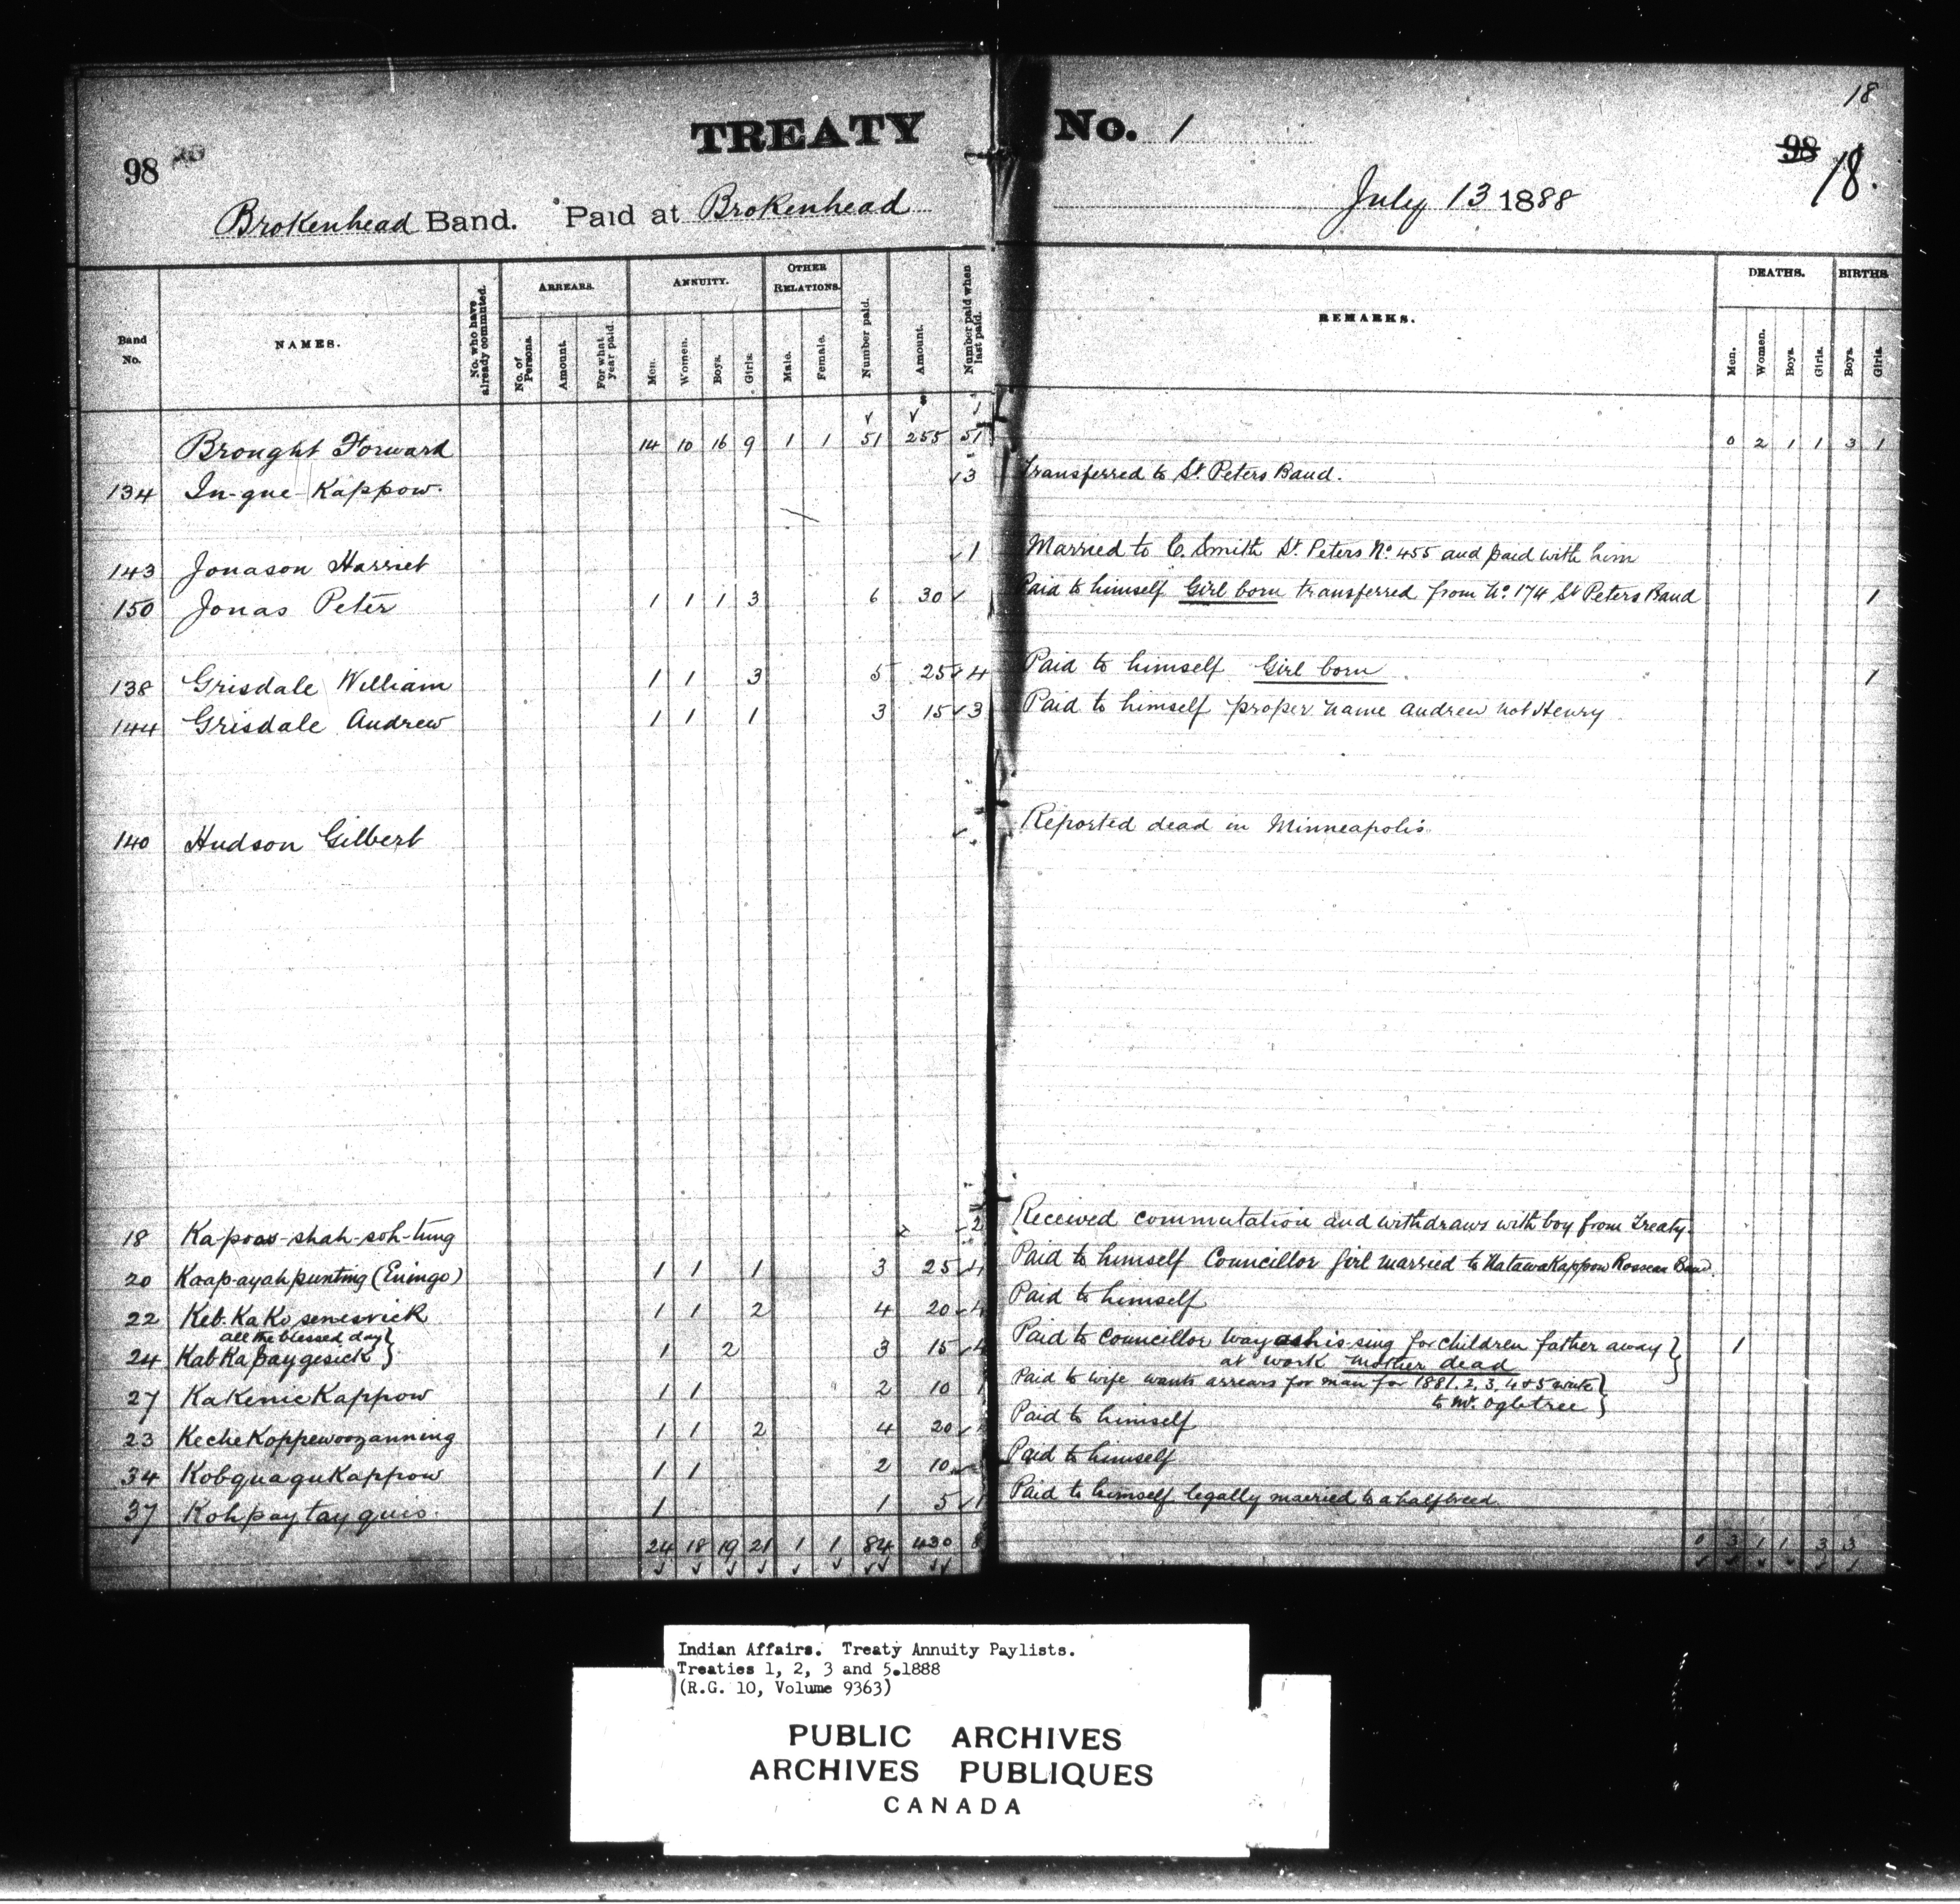 18
TREATY No. 1
98 20
98 18.
Brokenhead Band. Paid at Brokenhead July 13 1888
Band No. NAMES. No. who have already commuted. ARREARS. No. of Persons. Amount. For what year paid. ANNUITY. Men. Women. Boys. Girls. OTHER RELATIONS. Male. Female. Number paid. Amount. Number paid when last paid. REMARKS. DEATHS. Men. Women. Boys. Girls. BIRTHS. Boys. Girls.
Brought Forward 14 10 16 9 1 1 51 255 51 0 2 1 1 3 1
134 In-gue-Kappow. 3 Transferred to St. Peters Band.
143 Jonason Harriet 1 Married to C. Smith St. Peters No. 455 and paid with him
150 Jonas Peter 1 1 1 3 6 30 Paid to himself Girl born transferred from No. 174 St Peters Band 1
138 Grisdale William 1 1 3 5 25 4 Paid to himself Girl born 1
144 Grisdale Andrew 1 1 1 3 15 3 Paid to himself proper name Andrew not Henry
140 Hudson Gilbert Reported dead in Minneapolis
18 Ka-poo-shah-soh-tung 2 Received commutation and withdraws with boy from Treaty.
20 Kaap-ayah punting (Eningo) 1 1 1 3 25 4 Paid to himself Councillor Girl married to Band.
22 Keb-Ka Ko 1 1 2 4 20 4 Paid to himself
all the blessed day }
24 Kab Ka paygesick } 1 2 3 15 4 Paid to Councillor for children father away } 1
at work mother dead
27 KaKenicKappow 1 1 2 10 1 Paid to wife wants arrears for man for 1881, 2, 3, 4 & 5 write }
to Mr. Ogletree }
23 Keche 1 1 2 4 20 Paid to himself
34 KobquaguKappow 1 1 2 10 Paid to himself
37 Kohpaytayquis. 1 1 5 1 Paid to himself legally married to a halfbreed
24 18 19 21 1 1 84 430 8 0 3 1 1 3 3
Indian Affairs. Treaty Annuity Paylists.
Treaties 1, 2, 3 and 5.1888
(R.G. 10, Volume 9363)
PUBLIC ARCHIVES
ARCHIVES PUBLIQUES
CANADA